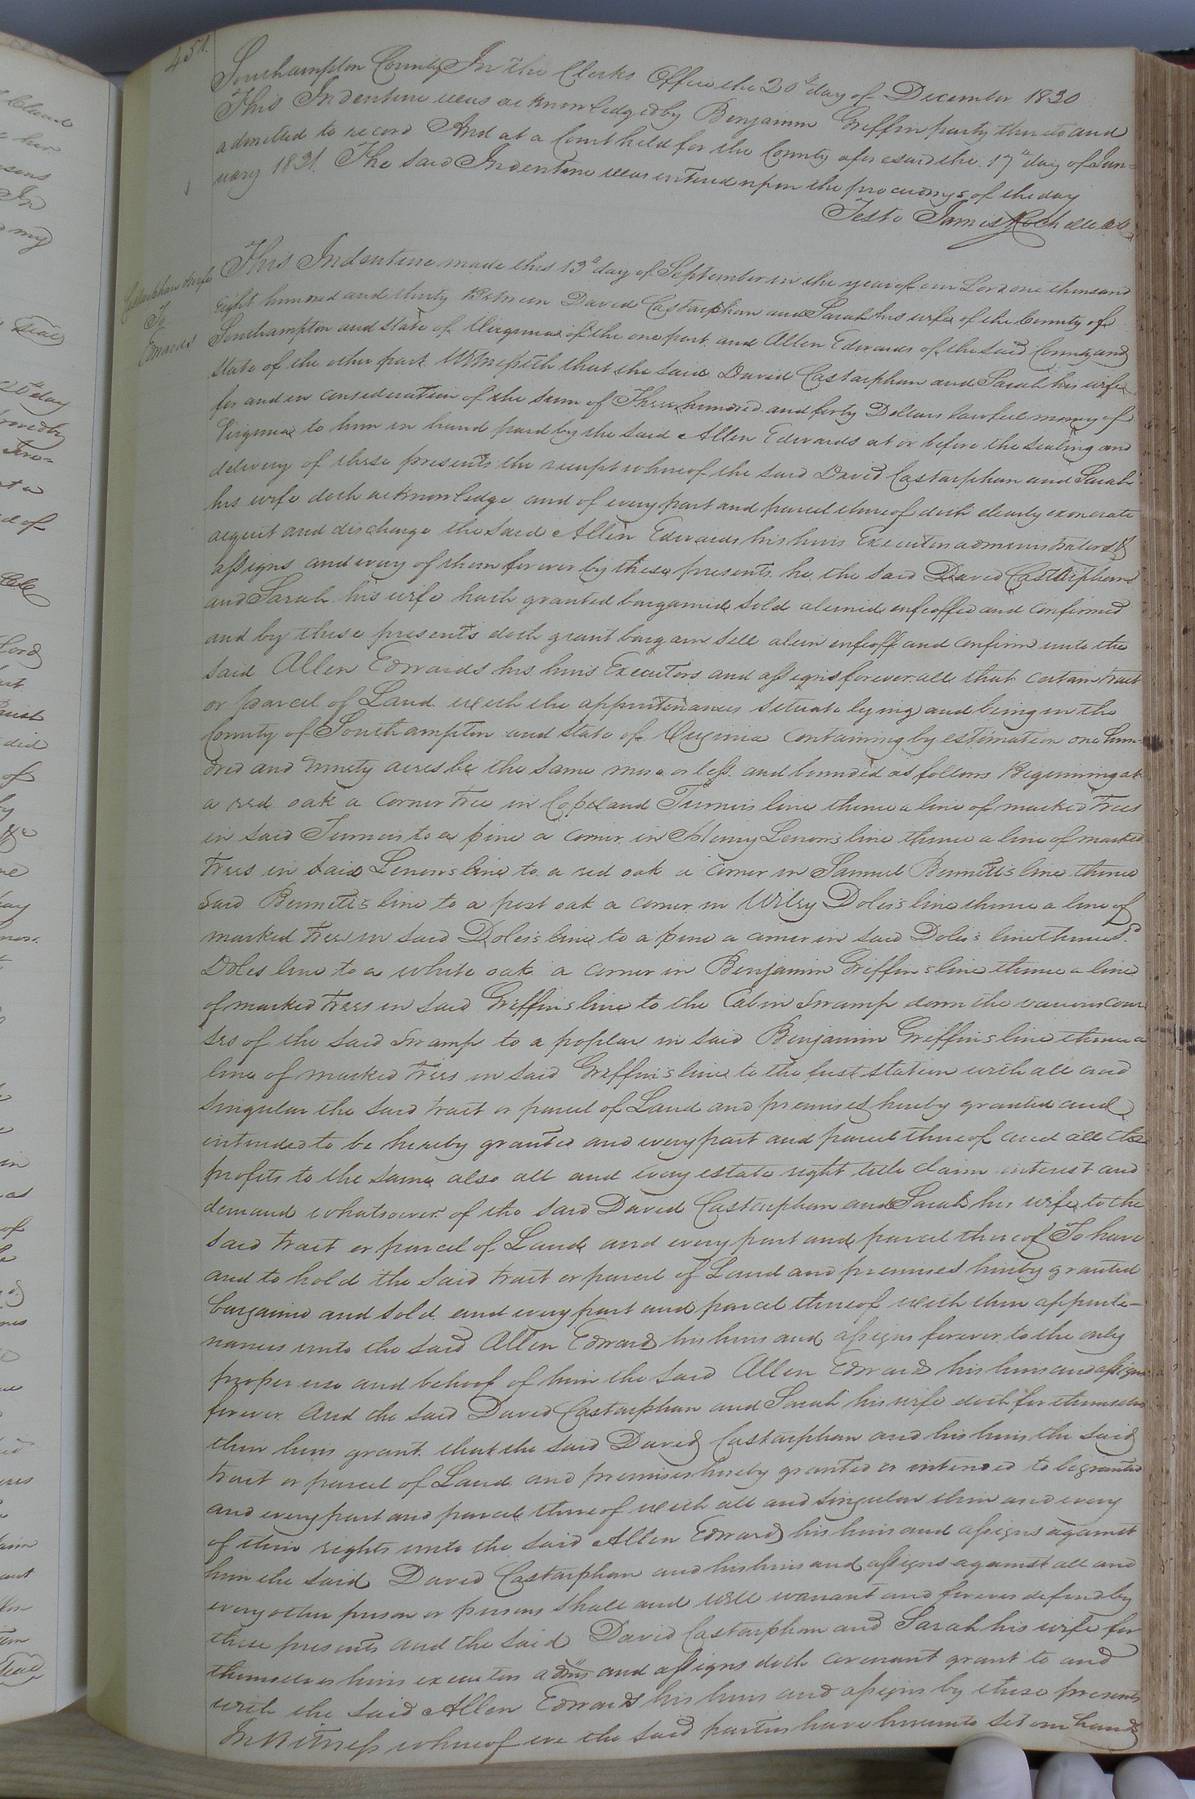 451.
Southampton County In the Clerks Office the 20th day of December 1830
This Indenture was acknowledged by Benjamin Griffin party thereto and
admitted to record And at a Court held for the County aforesaid the 17th day of Jan-
uary 1831. The said Indenture was entered upon the proceedings of the day
Teste James Rochelle
To
Edwards
This Indenture made this 13th day of September in the year of our Lord one thousand
eight hundred and thirty Between David Castarphan and Sarah his wife of the County of
Southampton and State of Virginia of the one part and Allen Edwards of the said County and
State of the other part Witnesseth that the said David Castarphan and Sarah his wife
for and in consideration of the sum of Three hundred and forty Dollars lawful money of
Virginia to him in hand paid by the said Allen Edwards at or before the sealing and
delivery of these presents the receipt whereof the said David Castarphan and Sarah
his wife doth acknowledge and of every part and parcel thereof doth clearly exonerate
acquit and discharge the said Allen Edwards his heirs Executors administrators &
assigns and every of them forever by these presents he the said David Castarphan
and Sarah his wife hath granted bargained sold aliened enfeoffed and confirmed
and by these presents doth grant bargain sell alien enfeoff and confirm unto the
said Allen Edwards his heirs Executors and assigns forever all that certain tract
or parcel of Land with the appurtenances situate lying and being in the
County of Southampton and State of Virginia containing by estimation one hun-
dred and ninety acres be the same more or less and bounded as follows Beginning at
a red oak a corner tree in Copeland Turners line thence a line of marked trees
in said Turners to a pine a corner in Henry Lenow's line thence a line of marked
trees in said Lenow's line to a red oak a corner in Samuel Bennett's line thence
said Bennett's line to a post oak a corner in Wiley Doles's line thence a line of
marked trees in said Doles's line to a pine a corner in said Doles's line thence sd
Doles line to a white oak a corner in Benjamin Griffin's line thence a line
of marked trees in said Griffin's line to the Cabin Swamp down the various cour
ses of the said Swamp to a poplar in said Benjamin Griffin's line thence a
line of marked trees in said Griffin's line to the first station with all and
singular the said tract or parcel of Land and premises hereby granted and
intended to be hereby granted and every part and parcel thereof and all the
profits to the same also all and every estate right title claim interest and
demand whatsoever of the said David Castarphan and Sarah his wife to the
said tract or parcel of Land and every part and parcel thereof To have
and to hold the said tract or parcel of Land and premises hereby granted
bargained and sold and every part and parcel thereof with then appurte-
nances unto the said Allen Edwards his heirs and assigns forever to the only
proper use and behoof of him the said Allen Edwards his heirs and assigns
forever And the said David Castarphan and Sarah his wife doth for themselves
their heirs grant that the said David Castarphan and his heirs the said
tract or parcel of Land and premises hereby granted or intended to be granted
and every part and parcel thereof with all and singular their and every
of their rights unto the said Allen Edwards his heirs and assigns against
him the said David Castarphan and his heirs and assigns against all and
every other person or persons shall and will warrant and forever defend by
these presents and the said David Castarphan and Sarah his wife for
themselves heirs executors admrs and assigns doth covenant grant to and
with the said Allen Edwards his heirs and assigns by these presents
In Witness whereof we the said parties have hereunto set our hands